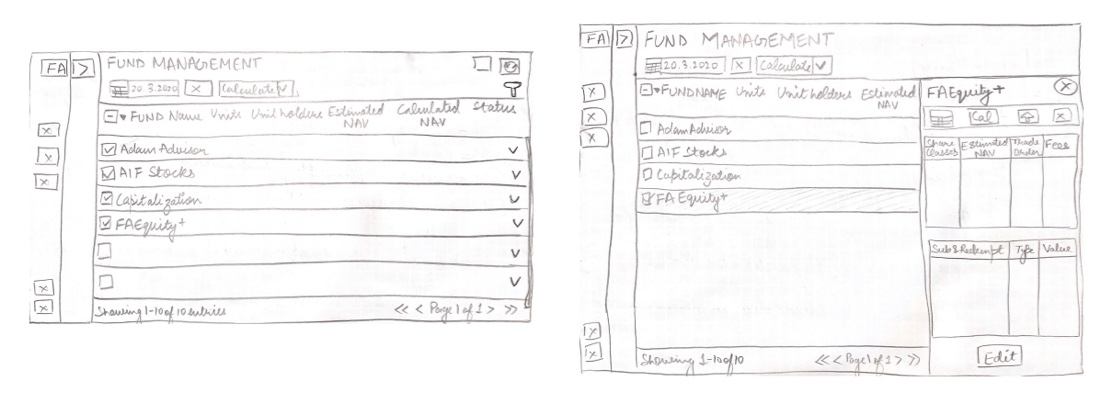 FA > FUND MANAGEMENT
20.3.2020 X Calculate
FUND Name Units Unit holders Estimated NAV Calculated NAV Status
Adam Advisor
AIF Stocks
Capitalization
FAEquity+
Showing 1-10 of 10 entries << < Page 1 of 1 > >>
FA > FUND MANAGEMENT
20.3.2020 X Calculate
FUNDNAME Units Unit holders Estimated NAV
Adam Advisor
AIF Stocks
Capitalization
FA Equity+
Showing 1-10 of 10 << < Page 1 of 1 > >>
FAEquity+ X
Cal X
Share Classes Estimated NAV Trade Order Fees
Sub & Redempt Type Value
Edit